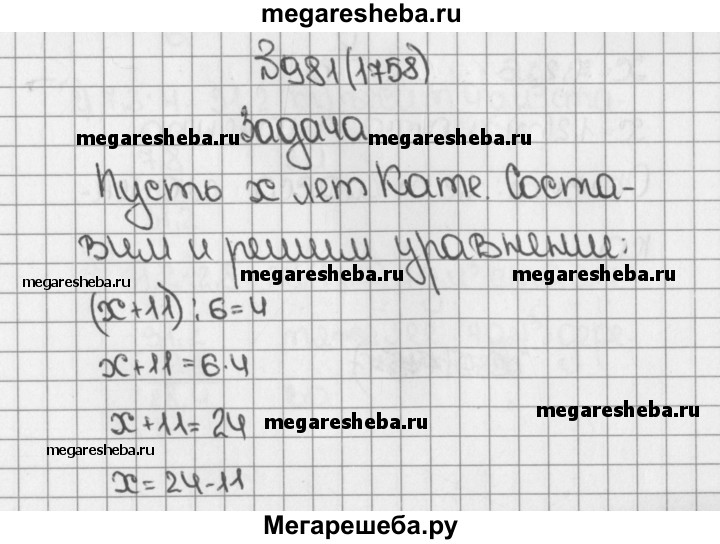 megaresheba.ru
№981(1758)
megaresheba.ru Задача megaresheba.ru
Пусть х лет Кате. Соста-
вим и решим уравнение:
megaresheba.ru megaresheba.ru megaresheba.ru
(х+11):6=4
х+11=6·4
megaresheba.ru
х+11=24 megaresheba.ru
megaresheba.ru
х=24-11
Мегарешеба.ру